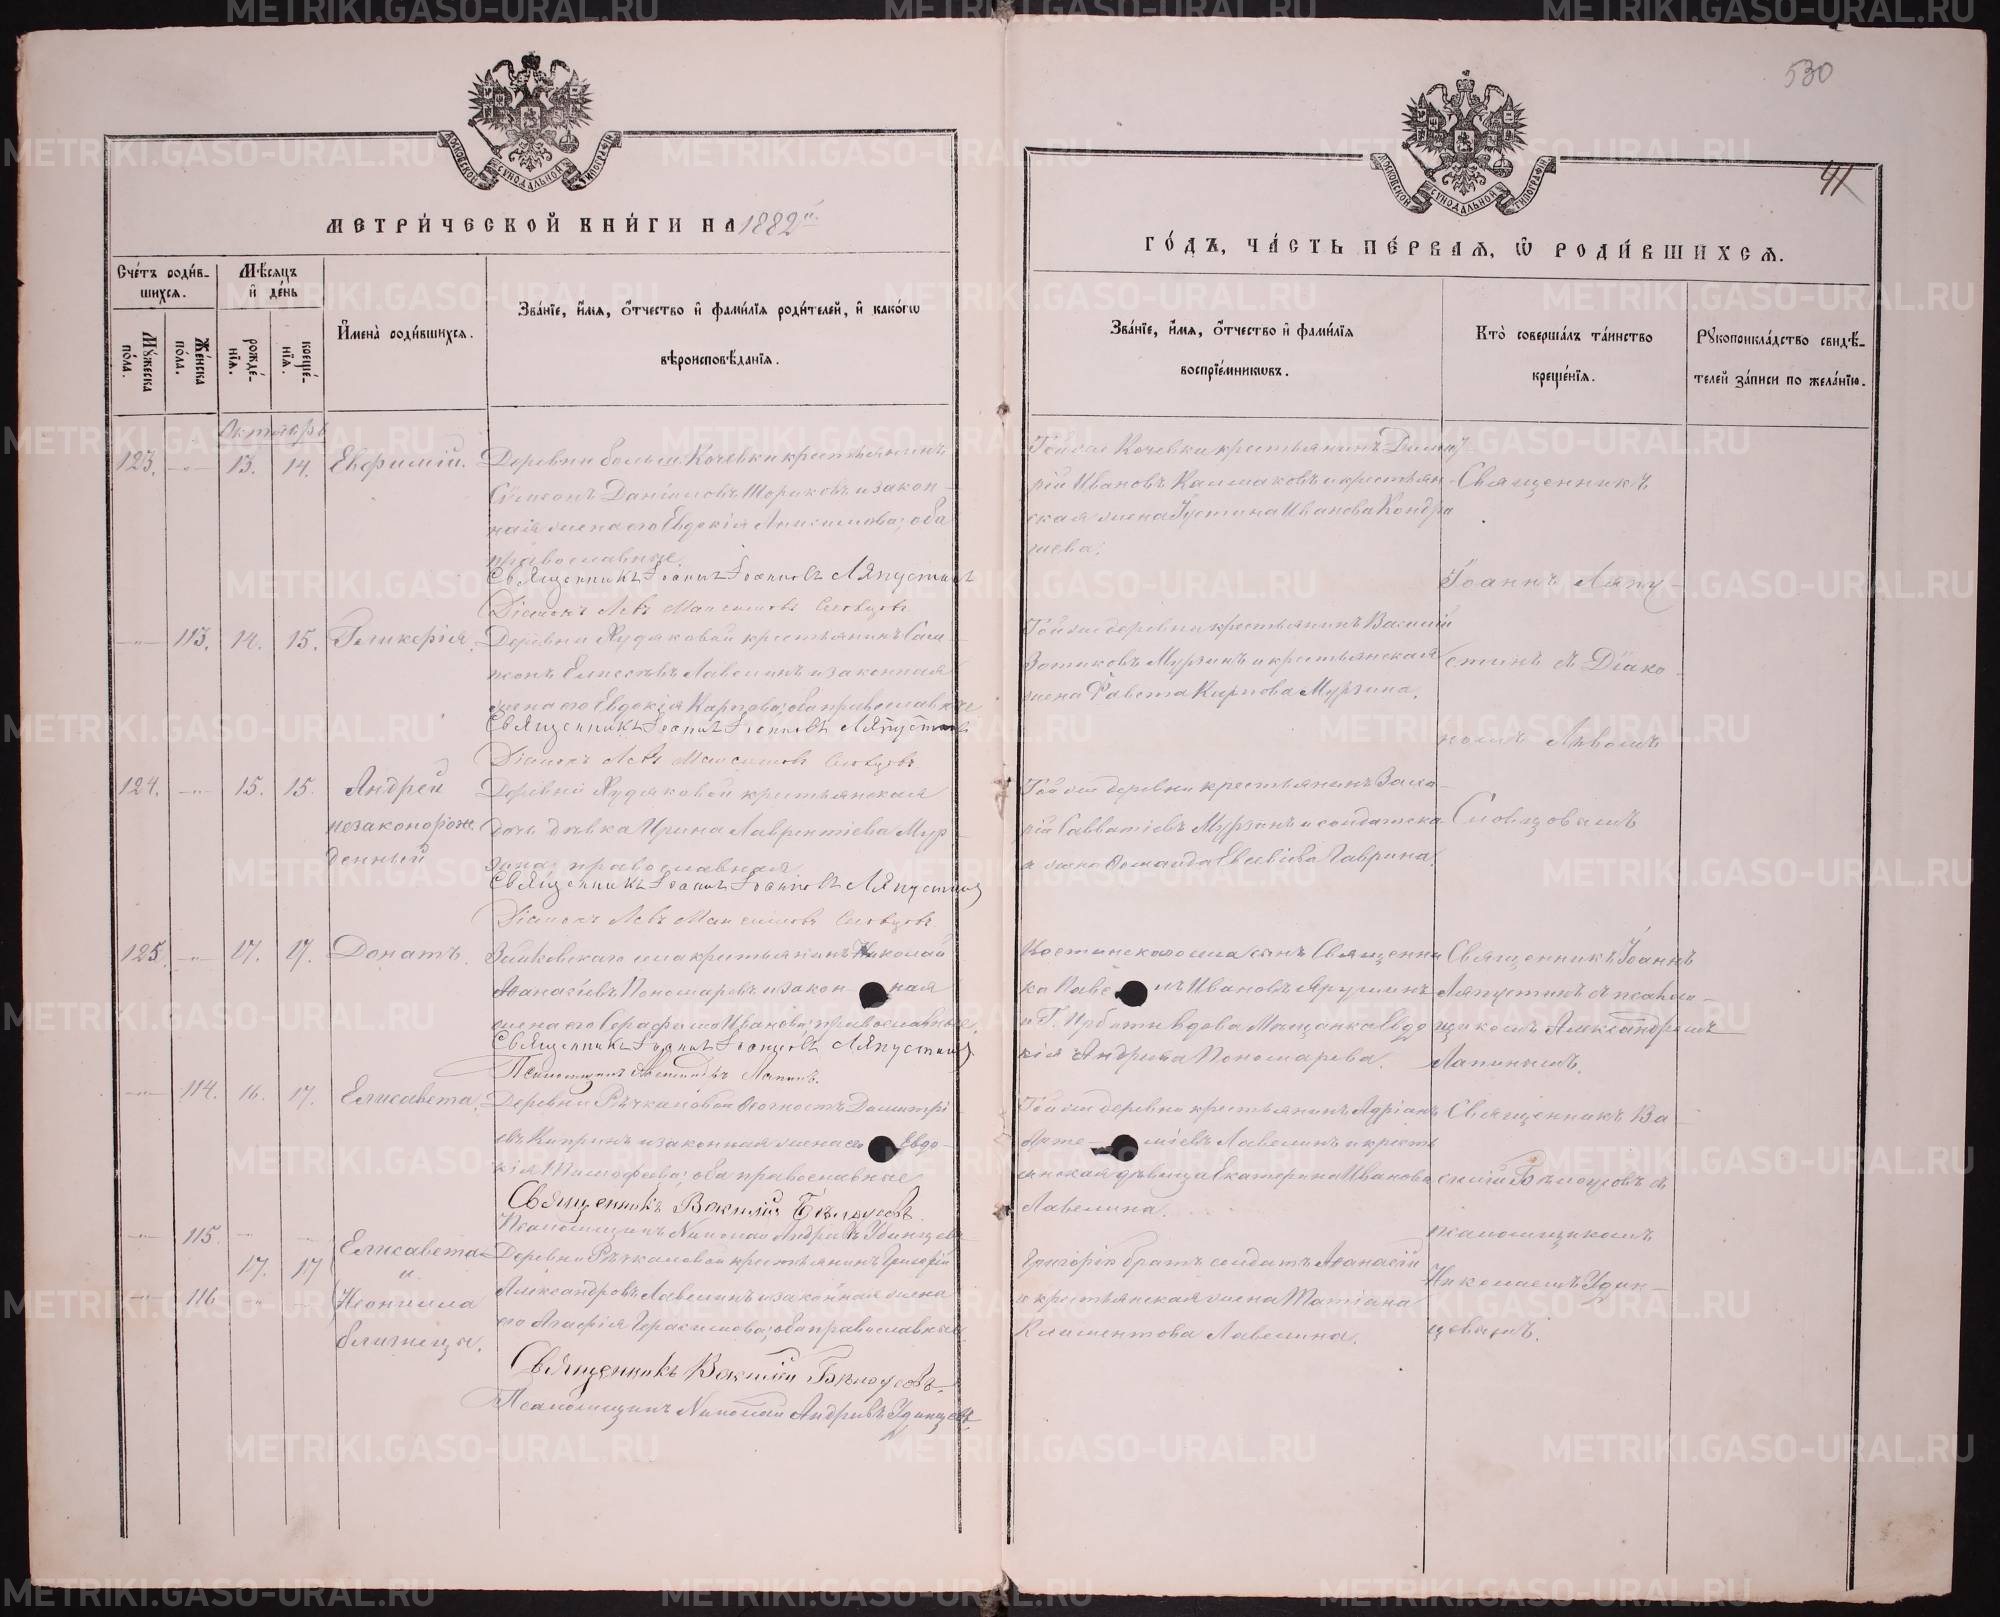 530
41
МОСКОВСКОЙ СѴНОДАЛЬНОЙ ТИПОГРАФІИ
МОСКОВСКОЙ СѴНОДАЛЬНОЙ ТИПОГРАФІИ
МЕТРИ́ЧЕСКОЙ КНИ́ГИ НА 1882й
ГО́ДЪ, ЧА́СТЬ ПЕ́РВАЯ, Ѽ РОДИ́ВШИХСЯ.
Сче́тъ роди́в-
шихся.
Мꙋ́жеска по́ла.
Же́нска по́ла.
Мѣ́сяцъ
и҆ де́нь
рожде́нїя.
креще́нїя.
И҆мена̀ роди́вшихся.
Зва́нїе, и҆́мя, ѻ҆́тчество и҆ фами́лїя роди́телей, и҆ како́гѡ
вѣроисповѣ́данїя.
Зва́нїе, и҆́мя, ѻ҆́тчество и҆ фами́лїя
воспрїе́мникѡвъ.
Кто̀ соверша́лъ та́инство
креще́нїя.
Рꙋкоприкла́дство свидѣ́-
телей за́писи по жела́нїю.
Октябрь
123. 13. 14. Евфимій.
Деревни больш. Кочевки крестьянинъ
Симеонъ Даніиловъ и закон-
ная жена его Евдокія Анисимова; оба
православные.
Священникъ Іоаннъ Іоанновъ Ляпустинъ
Діаконъ Левъ Максимовъ Словцовъ
Той же Кочевки крестьянинъ Димит-
рій Ивановъ и крестьян-
ская жена Іустина Иванова Кондра
шева.
Священникъ
Іоаннъ Ляпу-
стинъ съ Діако-
номъ Львомъ
Словцовымъ
113. 14. 15. Гликерія.
Деревни Худяковой крестьянинъ Сам-
сонъ Елисеевъ Лавелинъ и законная
жена его Евдокія Карпова; оба православные
Священникъ Іоаннъ Іоанновъ Ляпустинъ
Діаконъ Левъ Максимовъ Словцовъ
Той же деревни крестьянинъ Василій
Зотиковъ Мурзинъ и крестьянская
жена Карпова Мурзина.
124. 15. 15. Андрей
незаконорож
денный
Деревни Худяковой крестьянская
дочь дѣвка Ирина Лаврентіева Мур-
зина; православная
Священникъ Іоаннъ Іоанновъ Ляпустинъ
Діаконъ Левъ Максимовъ Словцовъ
Той же деревни крестьянинъ Заха-
рій Савватіевъ Мурзинъ и солдатска-
я жена Евсевіева Лаврина.
125. 17. 17. Донатъ.
села крестьянинъ Николай
Аѳанасіевъ Пономаревъ и закон- ная
жена его Серафима Иванова; православные.
Священникъ Іоаннъ Іоанновъ Ляпустинъ
Псаломщикъ Лапинъ.
Костинскаго села сынъ Священни
ка Паве лъ Ивановъ Ярушинъ
и Г. Ирбити вдова Мѣщанка Евдо
кія Андреева Пономарева.
Священникъ Іоаннъ
Ляпустинъ съ псалом-
щикомъ Александромъ
Лапинымъ.
114. 16. 17. Елисавета.
Деревни Рѣчкаловой Димитрі
евъ и законная жена его Евдо-
кія Тимофеева; оба православные
Священникъ Василій Бѣлоусовъ.
Псаломщикъ Николай Андреевъ Удинцевъ
Той же деревни крестьянинъ Адріанъ
Арте- міевъ Лавелинъ и кресть
янская дѣвица Екатерина Иванова
Лавелина.
Священникъ Ва-
силій Бѣлоусовъ съ
псаломщикомъ
Николаемъ Удин-
цовымъ.
115.
17. 17
116
Елисавета
и
Неонилла
близнецы.
Деревни Рѣчкаловой крестьянинъ Григорій
Александровъ Лавелинъ и законная жена
его Агафія Герасимова; оба православные
Священникъ Василій Бѣлоусовъ.
Псаломщикъ Николай Андреевъ Удинцевъ
Григорія братъ солдатъ Аѳанасій
и крестьянская жена Татіана
Климентова Лавелина.
METRIKI.GASO-URAL.RU